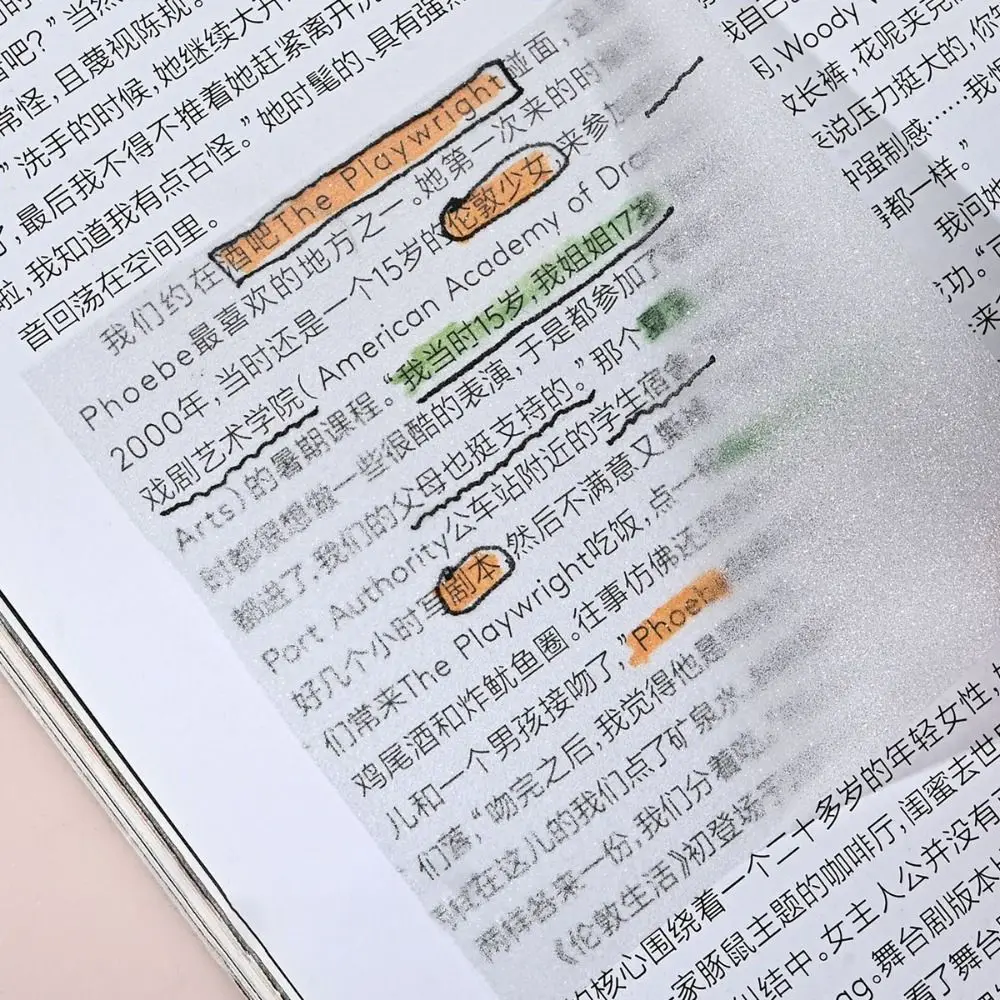 吧?”当然
常怪,且蔑视陈规。
”洗手的时候,她继续大开
,最后我不得不推着她赶紧离开洗
啦,我知道我有点古怪。”她时髦的、具有强烈
音回荡在空间里。
我们约在酒吧The Playwright碰面,这
Phoebe最喜欢的地方之一。她第一次来的时
2000年,当时还是一个15岁的伦敦少女,来参加
戏剧艺术学院(American Academy of Dra
Arts)的暑期课程。“我当时15岁,我姐姐17岁
时都很想做一些很酷的表演,于是都参加了
都进了,我们的父母也挺支持的。”那个
Port Authority公车站附近的学生宿舍
好几个小时写剧本,然后不满意又撕掉
们常来The Playwright吃饭,点一
鸡尾酒和炸鱿鱼圈。往事仿佛还
儿和一个男孩接吻了,”Phoeb
们落,“吻完之后,我觉得他是
在这儿的我们点了矿泉水
两样各来一份,我们分着
《伦敦生活》初登场于
我自己
Woody W
长裤,花呢来克
说压力挺大的,你
强制感……我
都一样。”
我问她
功。“
来
的核心围绕着一个二十多岁的年轻女性,
家豚鼠主题的咖啡厅,闺蜜去世
纠结中。女主人公并没有
ag。舞台剧版本
看了舞台